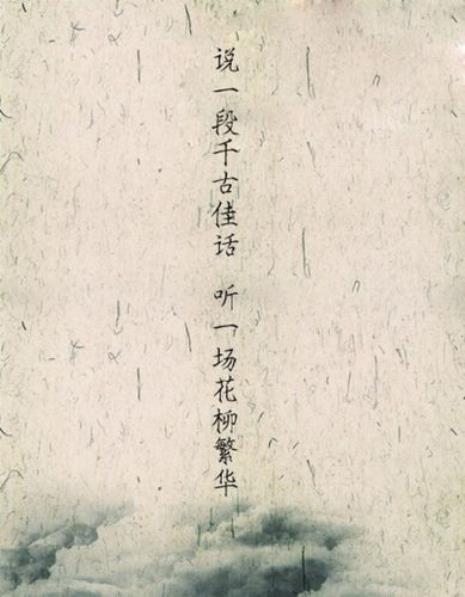 说一段千古佳话 听一场花柳繁华